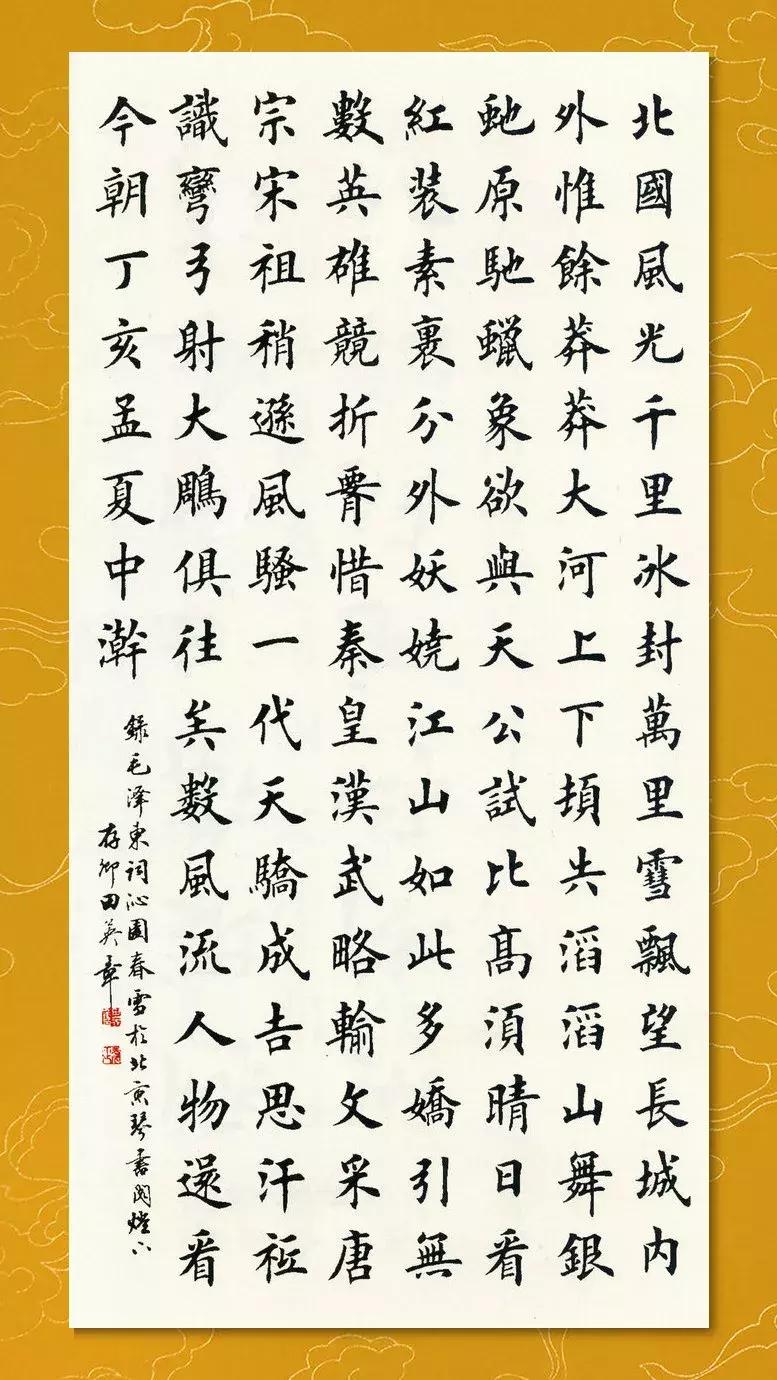 北國風光千里冰封萬里雪飄望長城内
外惟餘莽莽大河上下頓失滔滔山舞銀
虵原馳蠟象欲與天公試比高須晴日看
紅裝素裹分外妖嬈江山如此多嬌引無
數英雄競折腰惜秦皇漢武略輸文采唐
宗宋祖稍遜風騷一代天驕成吉思汗祇
識彎弓射大鵰俱往矣數風流人物還看
今朝丁亥孟夏中澣
錄毛泽東詞沁園春雪於北京琴書閣燈下
存卿田英章